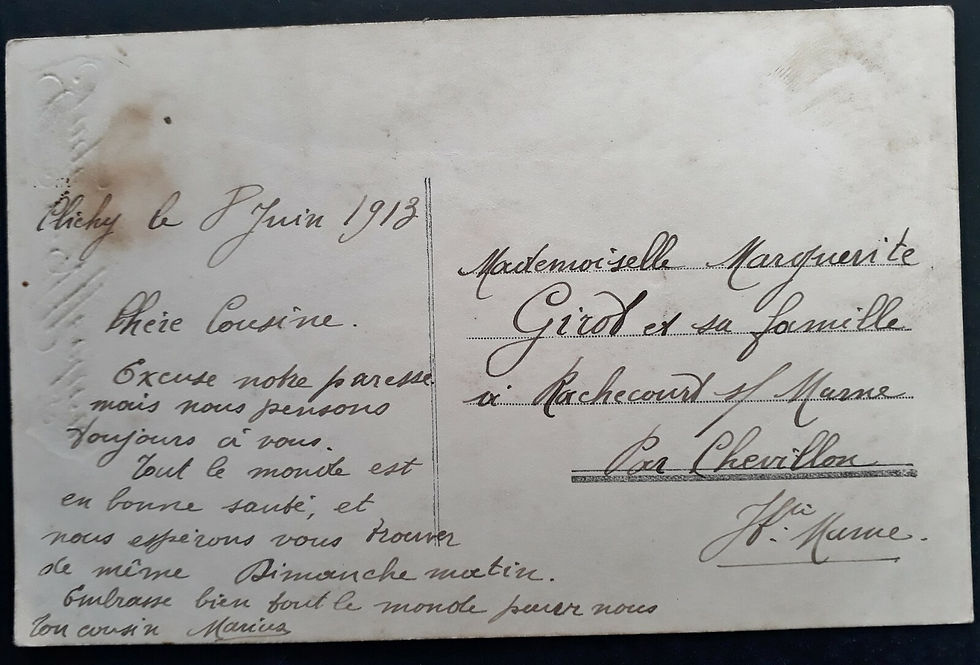 Clichy le 8 Juin 1913
Chère Cousine.
Excuse notre paresse
mais nous pensons
toujours à vous.
Tout le monde est
en bonne santé, et
nous espérons vous trouver
de même Dimanche matin.
Embrasse bien tout le monde pour nous
Ton cousin Marius
Mademoiselle Marguerite
Girot et sa famille
à Rachecourt s/ Marne
Par Chevillon
Hte. Marne.